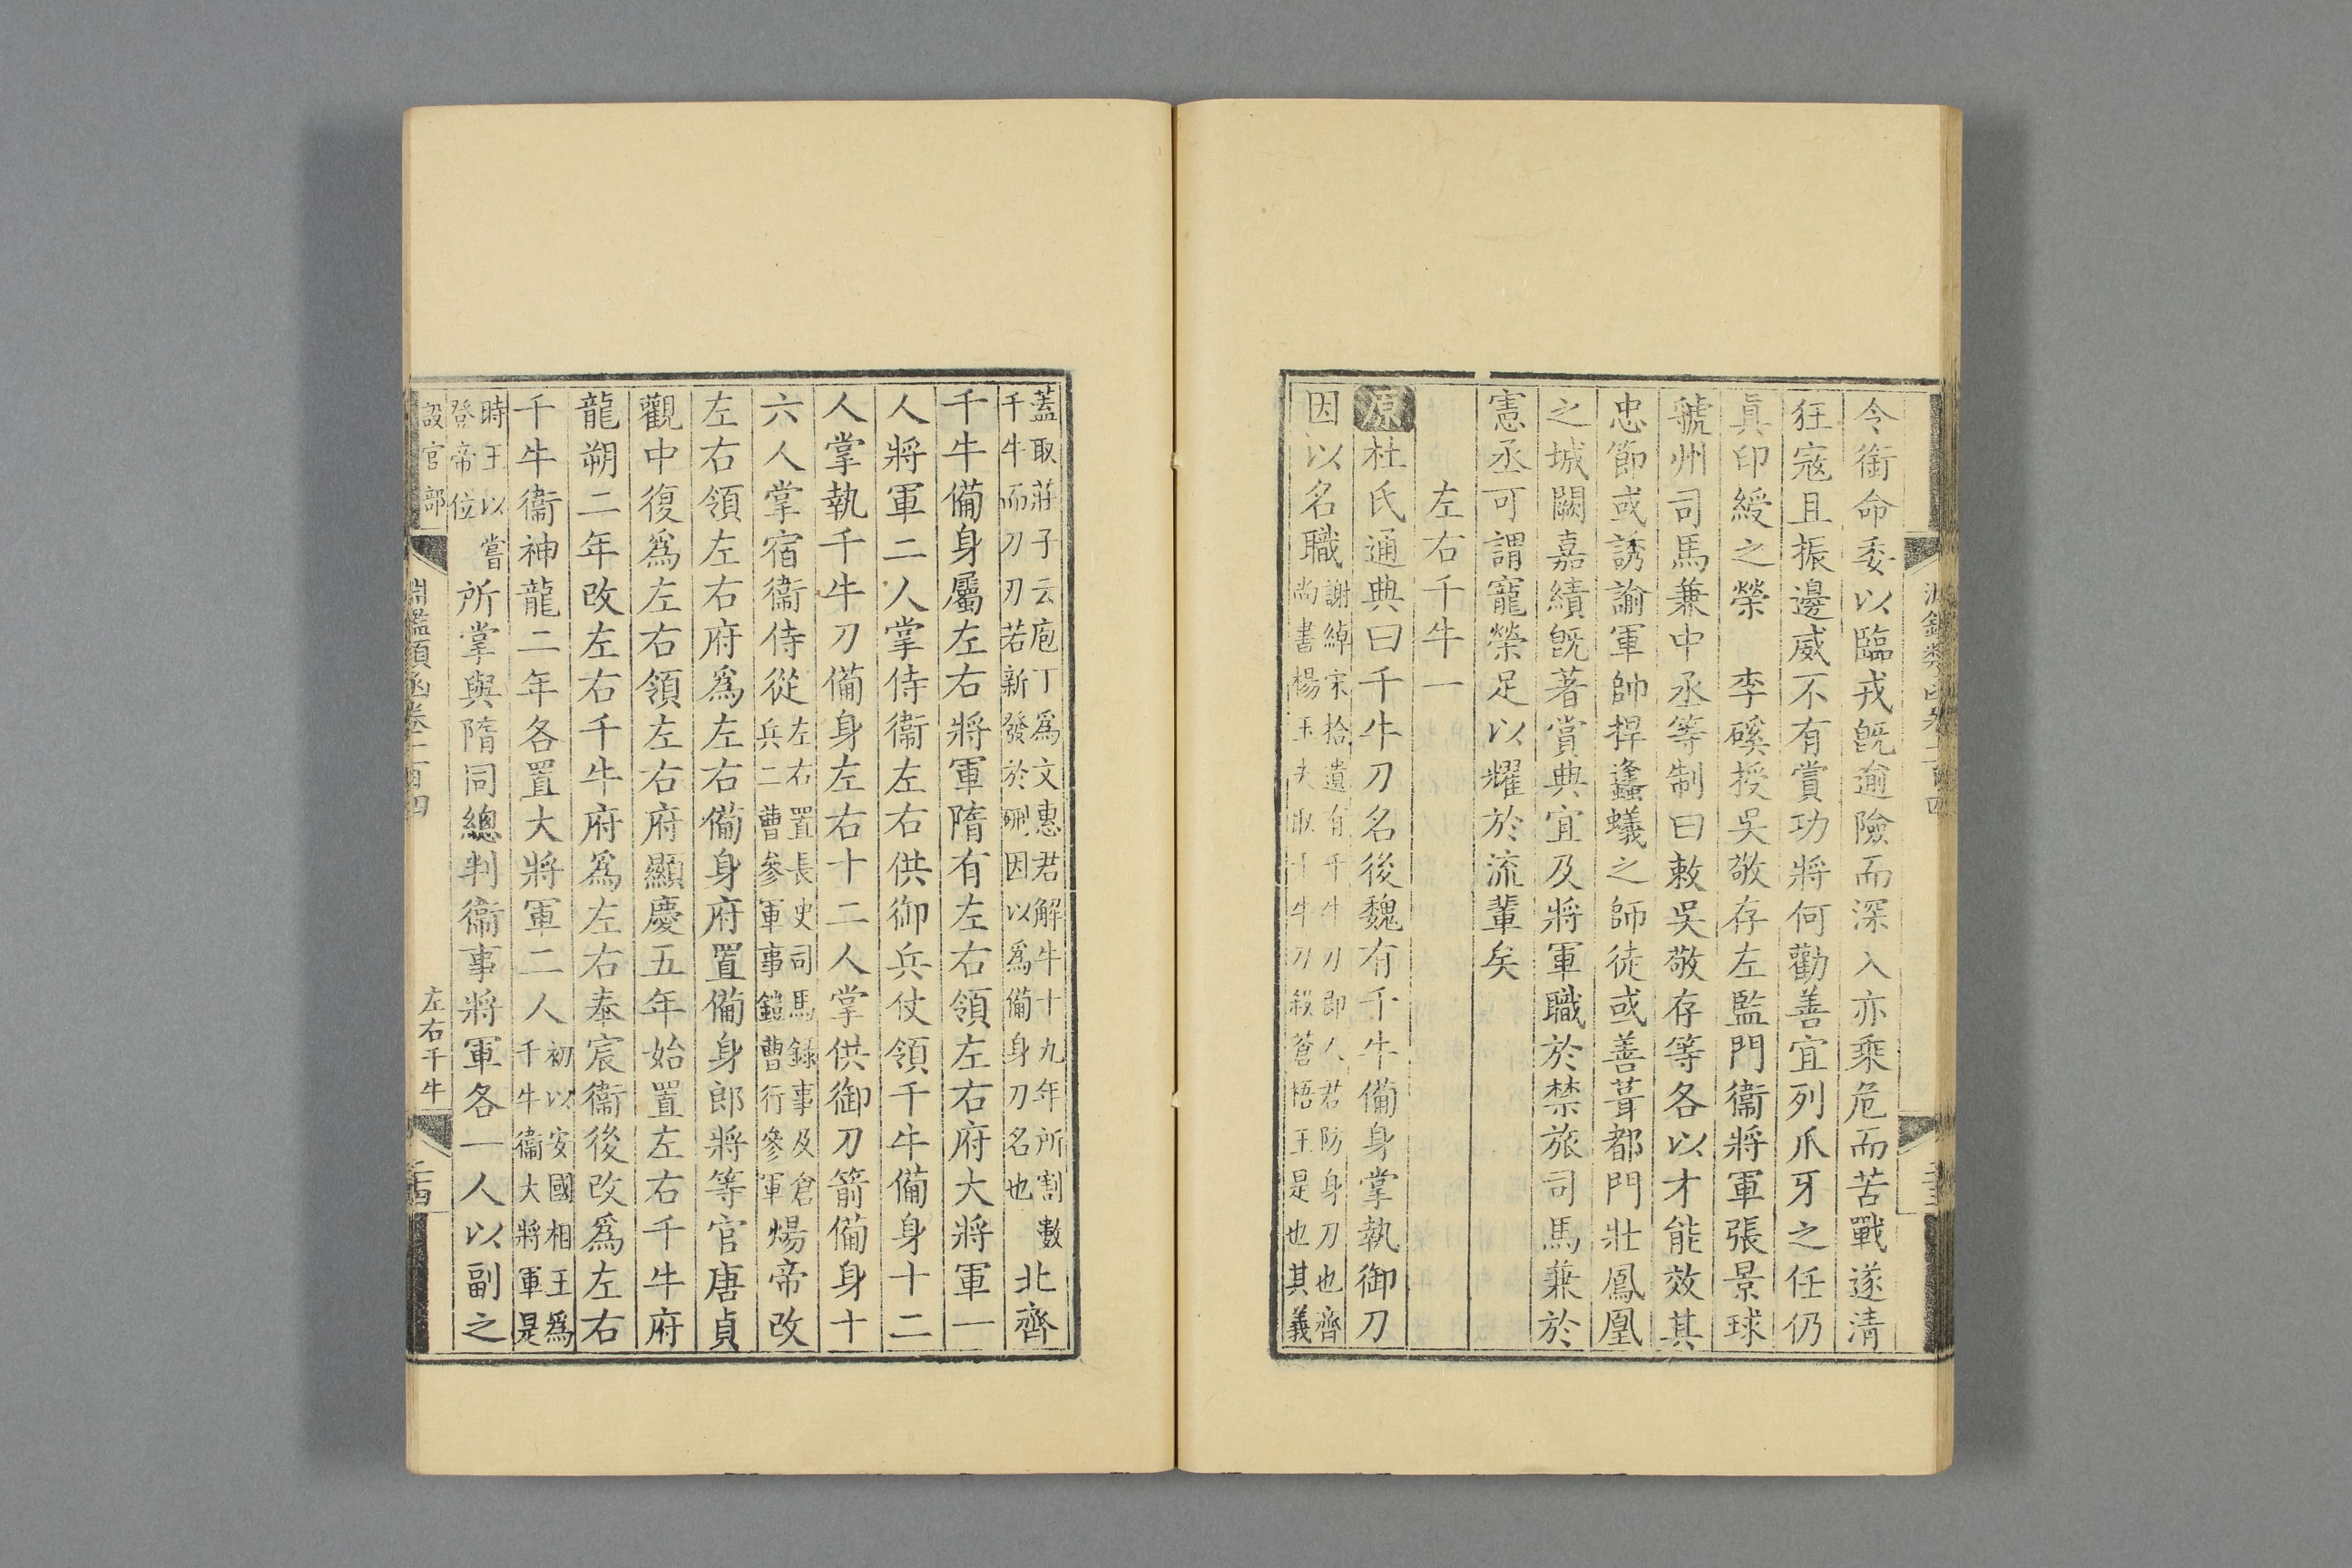 令銜命委以臨戎旣逾險而深入亦乘危而苦戰遂清
狂寇且振邊威不有賞功將何勸善宜列爪牙之任仍
眞印綬之榮　李磎授吳敬存左監門衞將軍張景球
虢州司馬兼中丞等制曰敕吳敬存等各以才能效其
忠節或誘諭軍帥捍蠭蟻之師徒或善葺都門壯鳳凰
之城闕嘉績旣著賞典宜及將軍職於禁旅司馬兼於
憲丞可謂寵榮足以耀於流輩矣
左右千牛一
原杜氏通典曰千牛刀名後魏有千牛備身掌執御刀
因以名職謝綽宋拾遺有千牛刀即人君防身刀也齊
尚書楊玉夫取千牛刀殺蒼梧王是也其義
蓋取莊子云庖丁爲文惠君解牛十九年所割數
千牛而刀刃若新發於硎因以爲備身刀名也北齊
千牛備身屬左右將軍隋有左右領左右府大將軍一
人將軍二人掌侍衞左右供御兵仗領千牛備身十二
人掌執千牛刀備身左右十二人掌供御刀箭備身十
六人掌宿衞侍從左右置長史司馬錄事及倉
兵二曹參軍事鎧曹行參軍煬帝改
左右領左右府爲左右備身府置備身郎將等官唐貞
觀中復爲左右領左右府顯慶五年始置左右千牛府
龍朔二年改左右千牛府爲左右奉宸衞後改爲左右
千牛衞神龍二年各置大將軍二人初以安國相王爲
千牛衞大將軍是
時王以嘗
登帝位所掌與隋同總判衞事將軍各一人以副之
設官部
淵鑑類函卷一百四
左右千牛